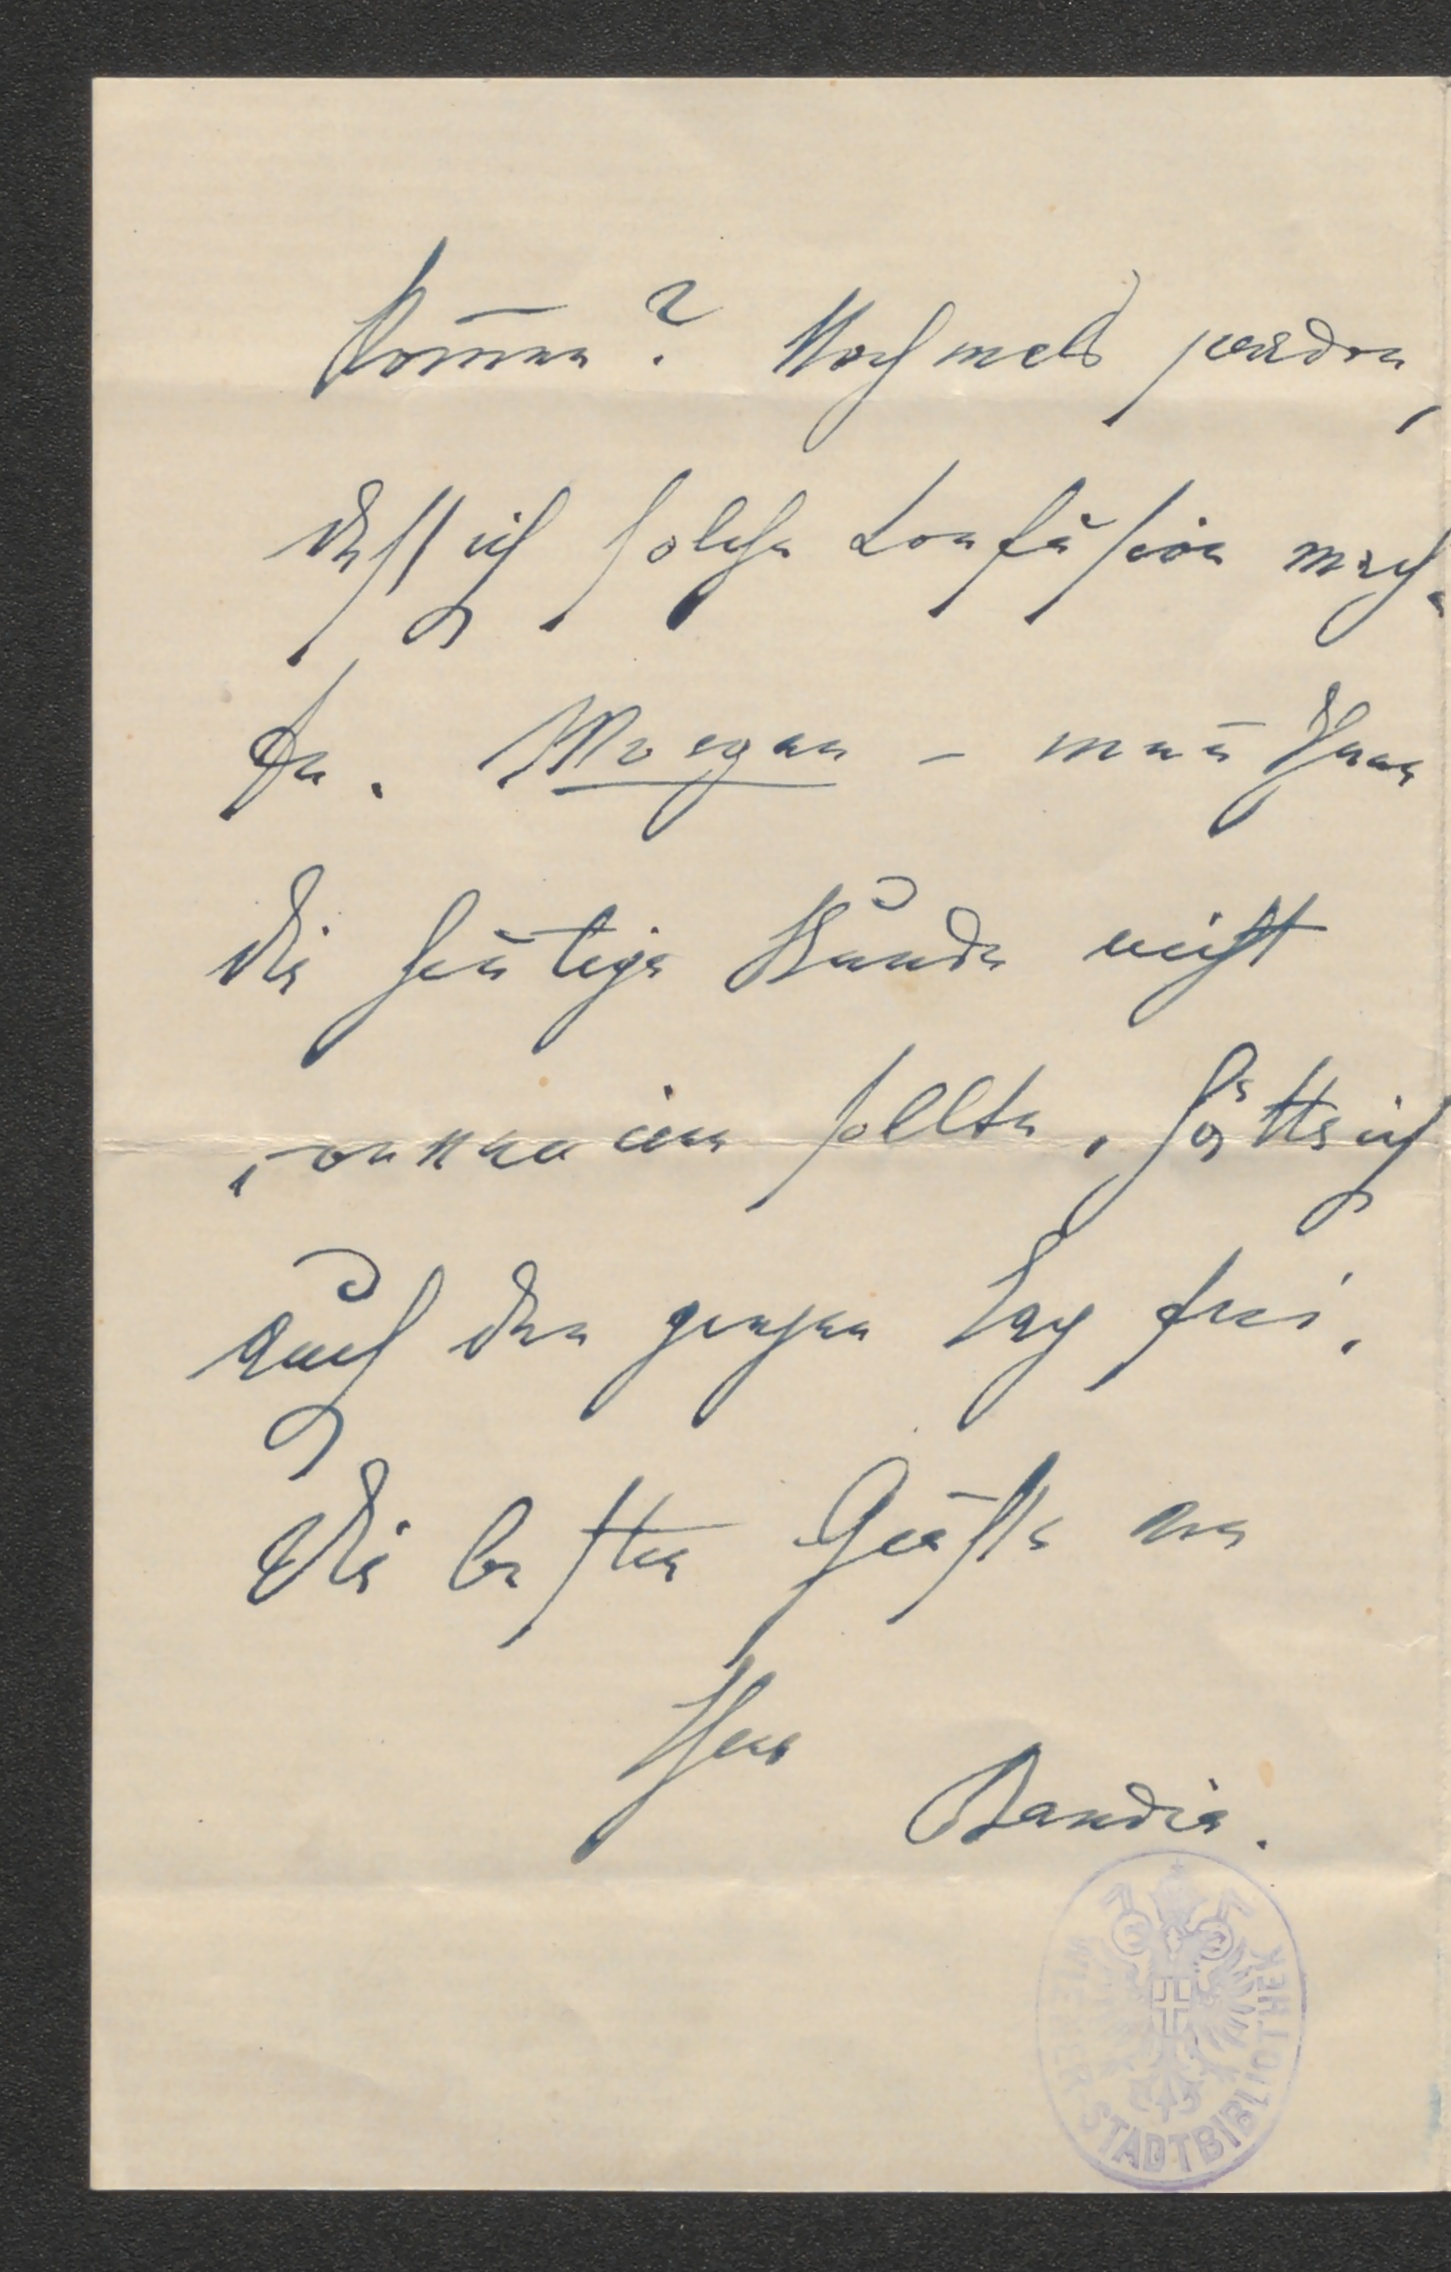 kom̄en? Nochmals pardon,
dass ich solche Confusion mach-
te. Morgen – wenn Ihnen
die heutige Stunde nicht
convenieren sollte, hätte ich
auch den ganzen Tag frei.
Die besten Grüße von
Ihrer
Sandia.
WIENER STADTBIBLIOTHEK